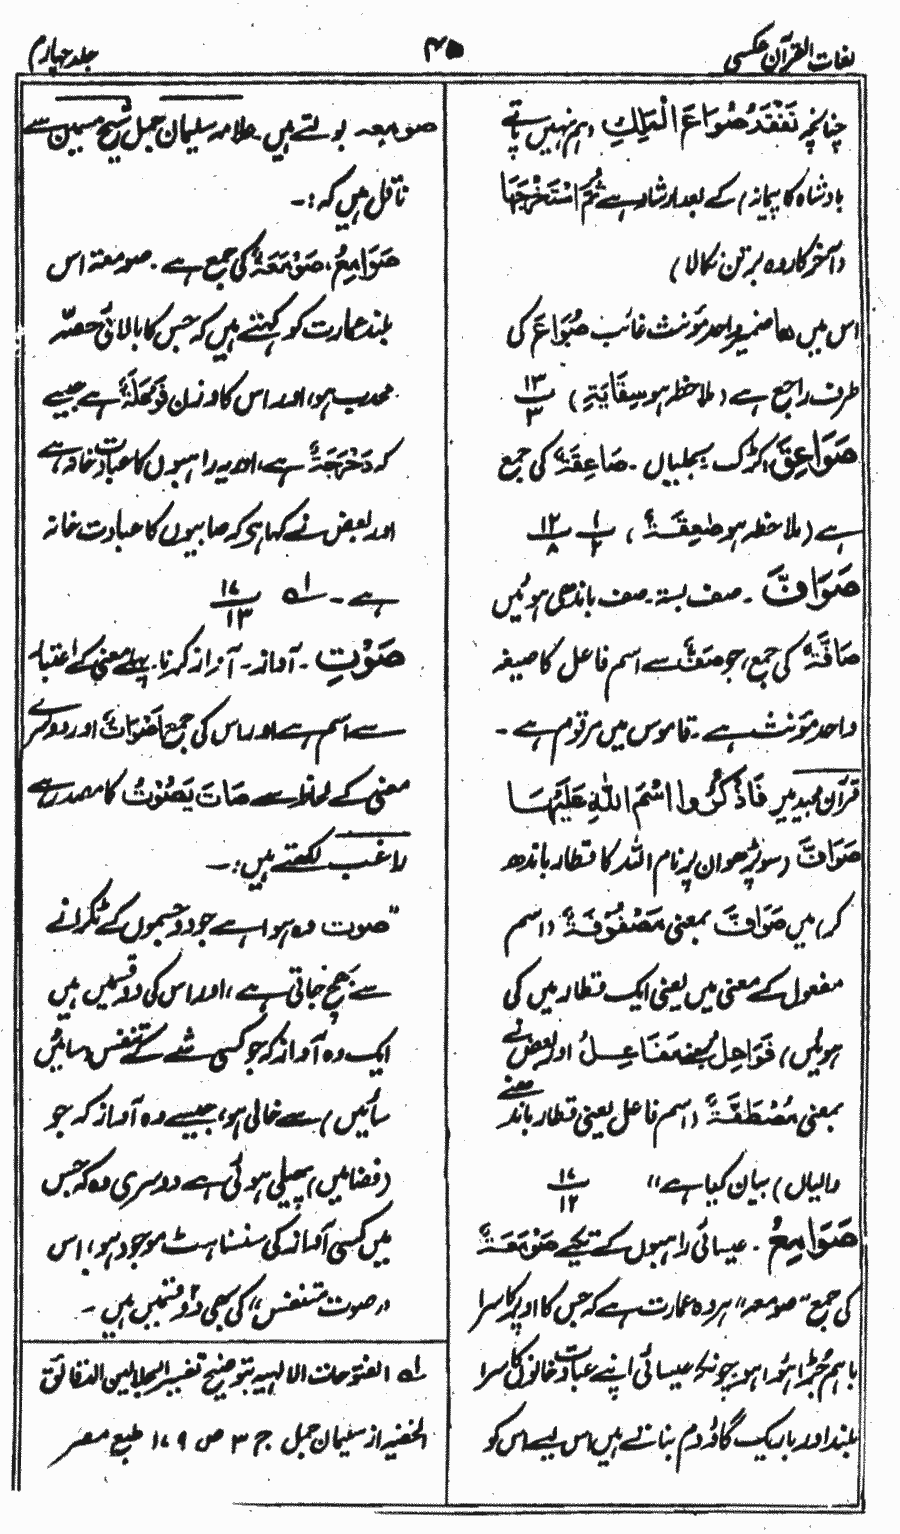 لغات القرآن عکسی
۴۵
جلد چہارم
چنانچہ نَفْقِدُ صُوَاعَ الْمَلِكِ (ہم نہیں پاتے
بادشاہ کا پیمانہ) کے بعد ارشاد ہے ثُمَّ اسْتَخْرَجَهَا
(آخر کار وہ برتن نکالا)
اس میں ھا ضمیر واحد مؤنث غائب صُوَاعَ کی
طرف راجع ہے (ملاحظہ ہو سِقَایَةِ) ۱۳/۳
صَوَاعِقَ، کڑک۔ بجلیاں۔ صَاعِقَةٌ کی جمع
ہے (ملاحظہ ہو صٰعِقَةٌ) ۱/۲ ۱۲/۸
صَوَافَّ ۔ صف بستہ۔ صف باندھی ہوئیں
صَافَّةٌ کی جمع، جو صَفٌّ سے اسم فاعل کا صیغہ
واحد مؤنث ہے۔ قاموس میں مرقوم ہے ۔
قرآن مجید میں فَاذْكُرُوا اسْمَ اللّٰهِ عَلَيْهَا
صَوَافَّ (سو پڑھو ان پر نام اللہ کا قطار باندھ
کر) میں صَوَافَّ بمعنی مَصْفُوْفَةٌ (اسم
مفعول کے معنی میں یعنی ایک قطار میں کی
ہوئیں) فَوَاعِلُ بمعنی مَفَاعِلُ اور بعض نے
بمعنی مُصْطَفَّةٌ (اسم فاعل یعنی قطار باندھنے
والیاں) بیان کیا ہے" ۱۷/۱۲
صَوَامِعُ ۔ عیسائی راہبوں کے تکیے صَوْمَعَةٌ
کی جمع "صومعہ" ہر وہ عمارت ہے کہ جس کا اوپر کا سرا
باہم جُڑا ہوا ہو چونکہ عیسائی اپنے عبادت خانوں کا سرا
بلند اور باریک گاؤدم بناتے ہیں اس لیے اس کو
صومعہ بولتے ہیں۔ علامہ سلیمان جمل شیخ سمین سے
ناقل ہیں کہ :۔
صَوَامِعُ، صَوْمَعَةٌ کی جمع ہے۔ صومعة اس
بلند عمارت کو کہتے ہیں کہ جس کا بالائی حصّہ
محدب ہو، اور اس کا وزن فَوْعَلَةٌ ہے جیسے
کہ دَحْرَجَةٌ ہے، اور یہ راہبوں کا عبادت خانہ ہے
اور بعض نے کہا ہی کہ صابیوں کا عبادت خانہ
ہے ۔ لہ ۱۷/۱۳
صَوْتِ ۔ آواز۔ آواز کرنا۔ پہلے معنی کے اعتبار
سے اسم ہے اور اس کی جمع اَصْوَاتٌ اور دوسرے
معنی کے لحاظ سے صَاتَ يَصُوْتُ کا مصدر ہے
راغب لکھتے ہیں :۔
"صوت وہ ہوا ہے جو دو جسموں کے ٹکرانے
سے بھچ جاتی ہے، اور اس کی دو قسمیں ہیں
ایک وہ آواز کہ جو کسی شے کے تنفس (سانس
سانس) سے خالی ہو، جیسے وہ آواز کہ جو
(فضا میں) پھیلی ہوئی ہے دوسری وہ کہ جس
میں کسی آواز کی سنسناہٹ موجود ہو، اس
"صوت متنفس" کی بھی دو قسمیں ہیں ۔
لہ الفتوحات الالہیہ بتوضیح تفسیر الجلالین الدقائق
الخفیہ از سلیمان جمل ج ۳ ص ۱۷۹ طبع مصر